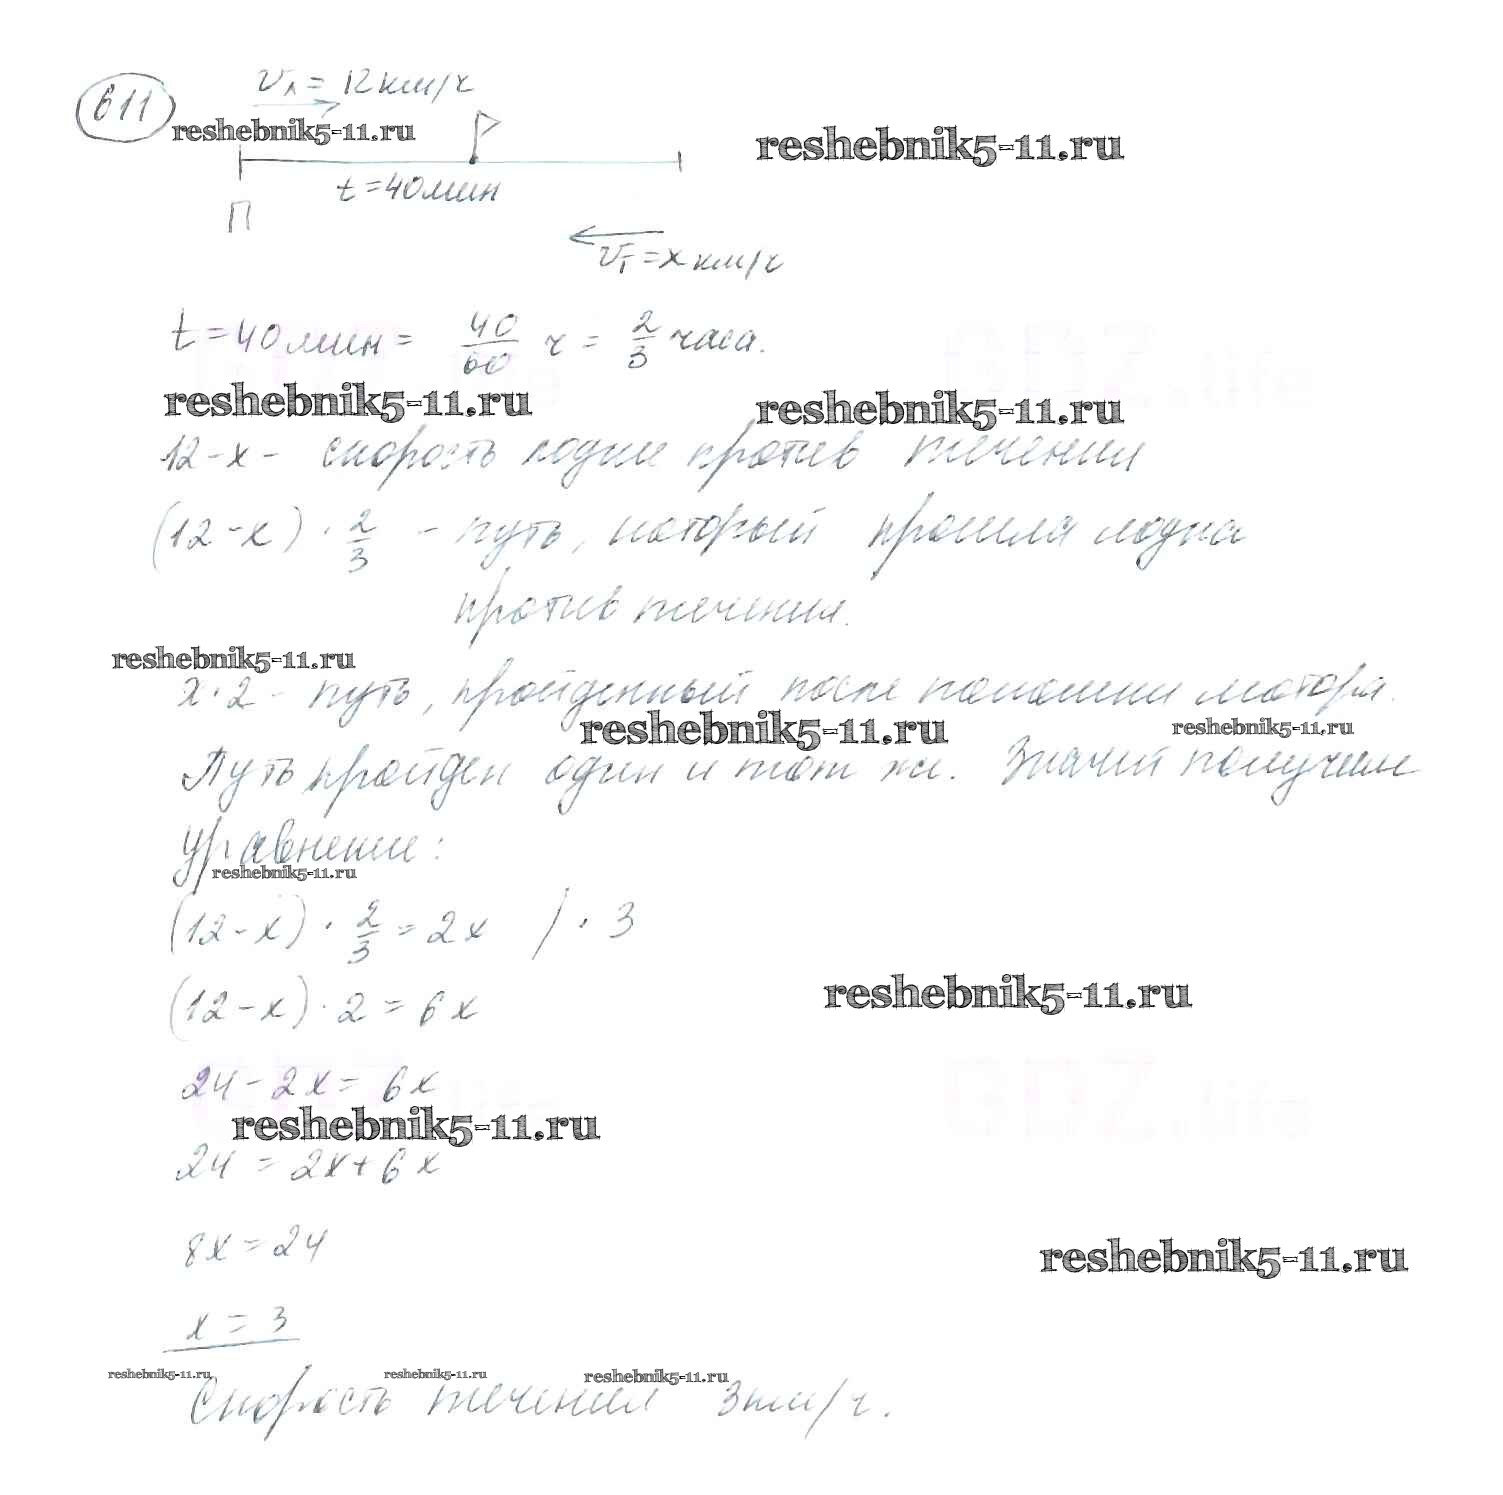 611
vл = 12 км/ч
reshebnik5-11.ru
reshebnik5-11.ru
t = 40 мин
П
vт = x км/ч
t = 40 мин = 40/60 ч = 2/3 часа.
GDZ.life
GDZ.life
reshebnik5-11.ru
reshebnik5-11.ru
12 - x - скорость лодки против течения
(12 - x) · 2/3 - путь, который прошла лодка
против течения.
reshebnik5-11.ru
x · 2 - путь, пройденный после поломки мотора.
reshebnik5-11.ru
reshebnik5-11.ru
Путь пройден один и тот же. Значит получим
уравнение:
reshebnik5-11.ru
(12 - x) · 2/3 = 2x / · 3
(12 - x) · 2 = 6x
reshebnik5-11.ru
24 - 2x = 6x
GDZ.life
GDZ.life
reshebnik5-11.ru
24 = 2x + 6x
8x = 24
reshebnik5-11.ru
x = 3
reshebnik5-11.ru
reshebnik5-11.ru
reshebnik5-11.ru
Скорость течения 3 км/ч.